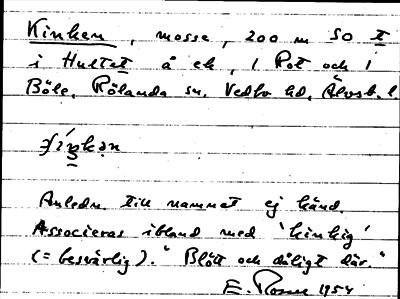 Kinken, mosse, 200 m SO t
i Hultet å ek, 1 Rot och 1
Böle, Rölanda sn. Vedbo hd, Älvsb. l.
Anledn. till namnet ej känd.
Associeras ibland med 'kinkig'
(= besvärlig). "Blött och dåligt där."
E. Rosen 1954